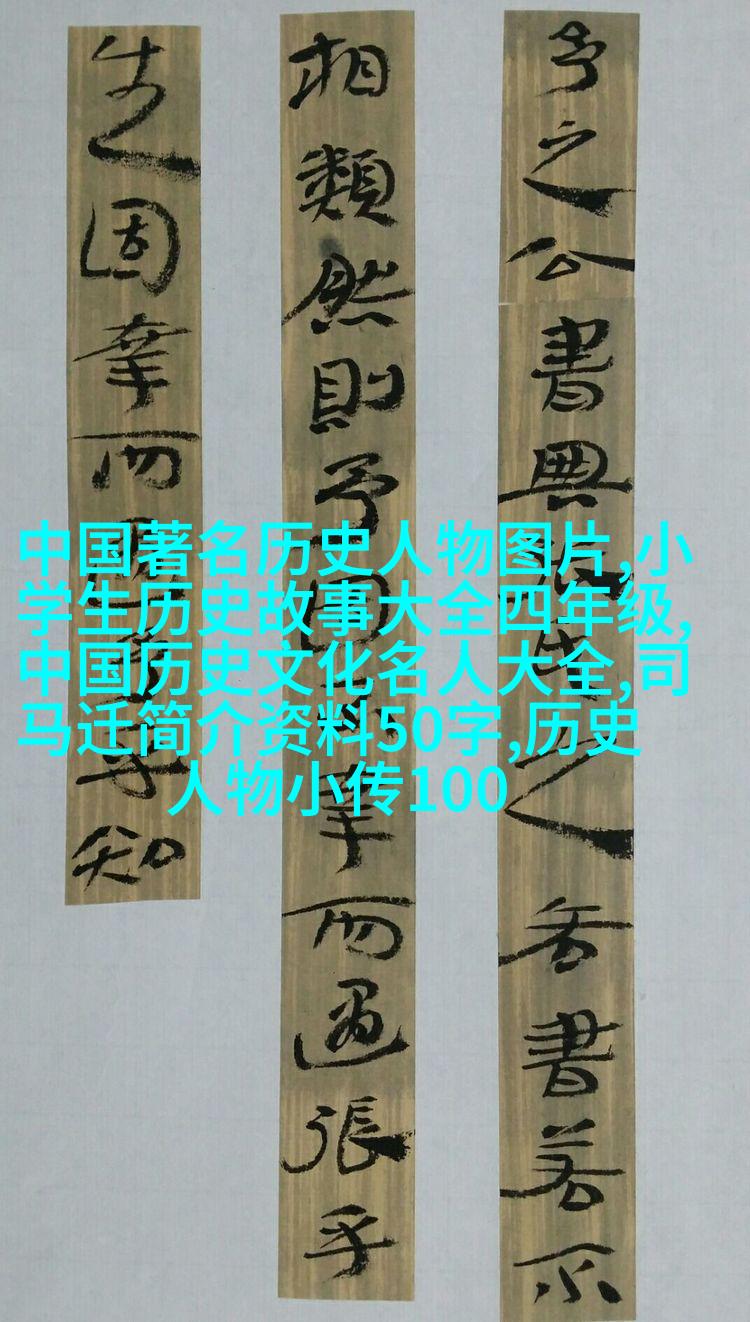 之公書與生之書若不
相類然則予幸而遇張乎
生固幸而乎知
中国著名历史人物图片,小
学生历史故事大全四年级,
中国历史文化名人大全,司
马迁简介资料50字,历史
人物小传100